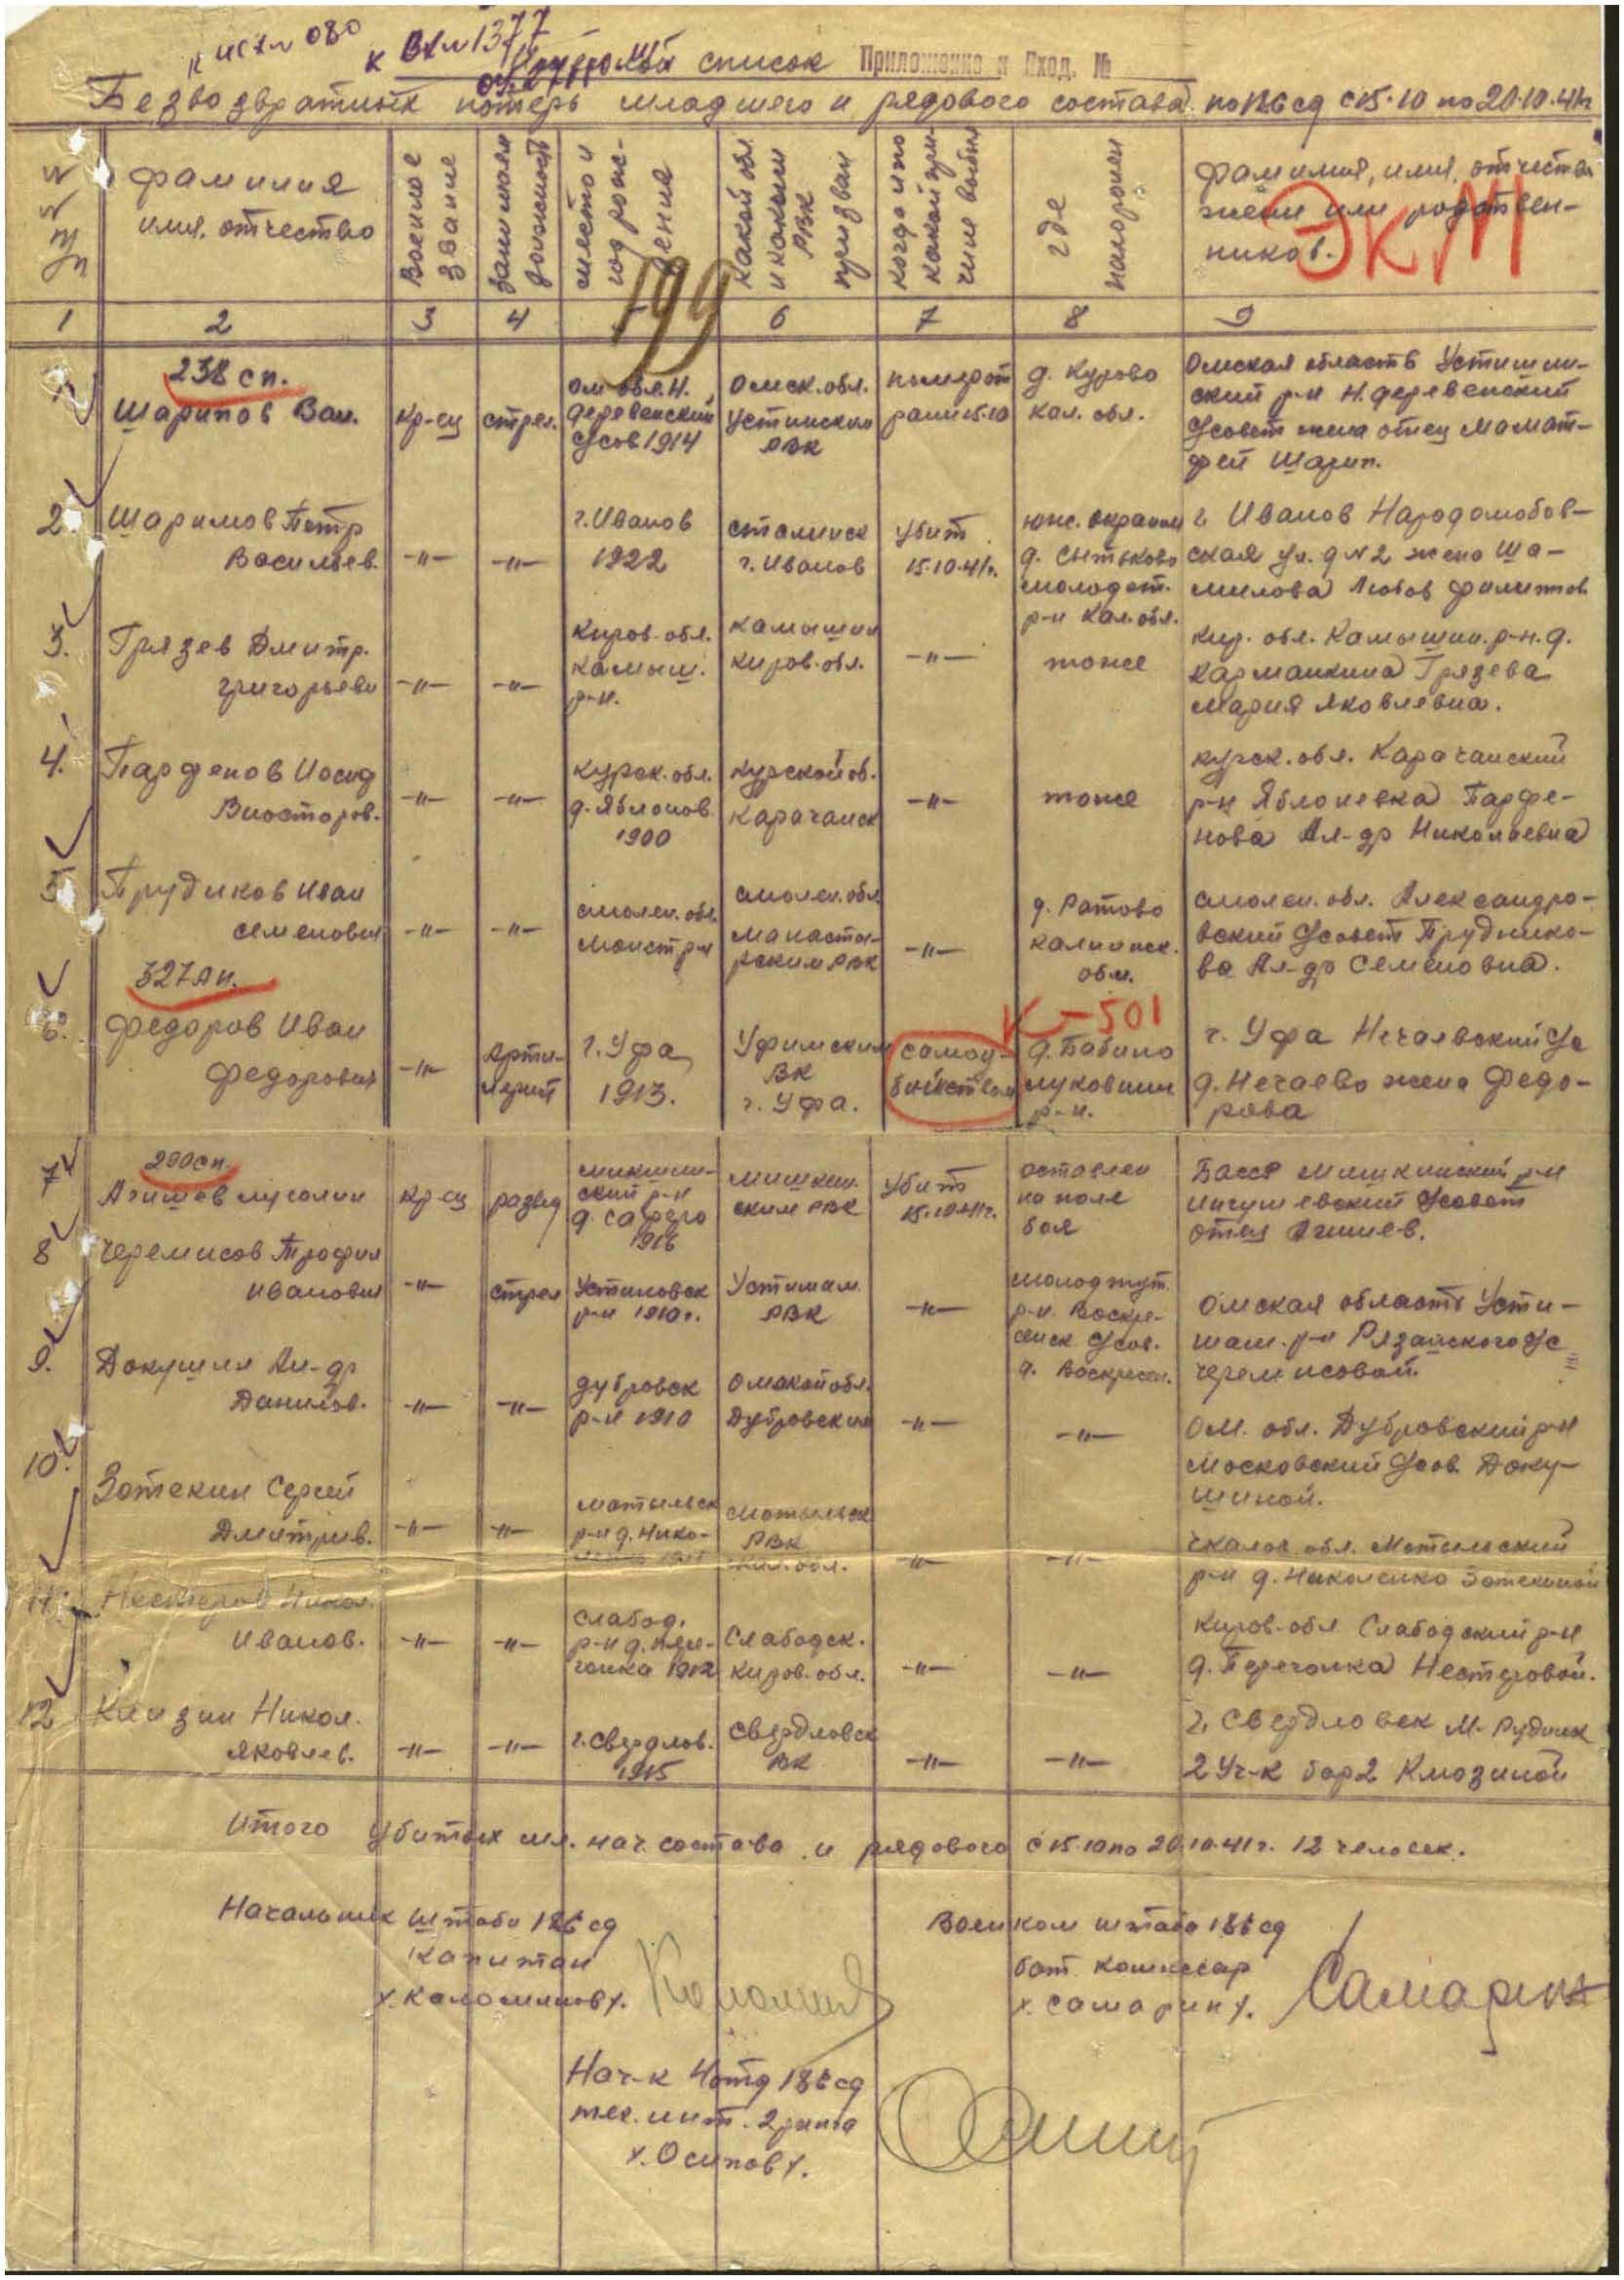 к исх № 080
к Вх № 1377
Именной список Приложение к Вход. №
Безвозвратных потерь младшего и рядового состава по 186 сд с 15.10 по 20.10.41г
№ № п/п
фамилия имя, отчество
Военное звание
занимаем должность
место и год рождение
какой обл. и каким РВК призван
когда и по какой причине выбыл
где похоронен
фамилия, имя, отчество жены или родственников.
ЭКМ
199
1 2 3 4 6 7 8 9
238 сп.
Шарипов Вал.
кр-ец
стрел.
ом обл. Н. деревенский Усов 1914
Омск. обл. Устишским РВК
помер от ран 15.10
д. Курово Кал. обл.
Омская область Устишим-
ский р-н Н. деревенский
Усовет жена отец Мамат-
фей Шарип.
2. Шаримов Петр
Васильев. -"- -"-
г. Иванов 1922
сталинск г. Иванов
Убит 15.10.41г.
южн. окраина д. Сытьково молодот. р-н Кал. обл.
г. Иванов
ская ул. д № 2 жена Ша-
милова Любов филипов
3. Грязев Дмитр.
григорьеви -"- -"-
Киров. обл. Камыш. р-н.
Камышин Киров. обл.
-"- тоже
Кир. обл. Камышин. р-н. д.
Карманкина Грязева
Мария Яковлевна.
4. Парфенов Иосиф
-"- -"-
Курск. обл. д. Яблонов. 1900
Курской об. Карачанск
-"- тоже
Курск. обл. Карачанский
р-н Яблоневка Парфе-
нова Ал-др Николаевна
5. Прудников Иван
семенович -"- -"-
смолен. обл. Монст р-н
смолен. обл Манасты-
рским РВК
-"-
д. Ратово калининск. обл.
смолен. обл. Александро-
вский Усовет Труднико-
ва Ал-др Семеновна.
327 ап.
6. федоров Иван
федорович -"-
Арти-
лерист
г. Уфа 1913.
Уфимским ВК г. Уфа.
самоу-
бийством
К-501
д. Бабино луковник р-н.
г. Уфа Нечаевский Ус
д. Нечаево жена Федо-
рова
290 сп.
7 Агишев
кр-ец развед
ский р-н д. Сафаро 1916
мишкин-
ским РВК
Убит 15.10.41г.
оставлен на поле боя
БАССР Мишкинский р-н
Усовет
отец Агишев.
8 Черемисов Трофим
иванович -"- стрел
Устиновск р-н 1910г.
Устишим. РВК
-"-
молод жут. р-н. Воскре-
сенск Усов. д. Воскресен.
Омская область Усти-
шим. р-н Рязанского Ус
черемисовой.
9. Докушин Ал-др
Данилов. -"- -"-
дубровск р-н 1910
Омской обл. Дубровским
-"- -"-
Ом. обл. Дубровский р-н
Московский Усов Доку-
шиной.
10. Зотекин Сергей
Дмитрив. -"- -"-
мотыльск р-н д. Нико-
мотыльск РВК
-"- -"-
чкалов. обл. Мотыльский
р-н д. Николенко Зотекиной
11. Нестеров Никол.
Иванов. -"- -"-
слабод. р-н д. 1912
Слабодск. Киров. обл.
-"- -"-
Киров. обл Слабодский р-н
д. Перечонка Нестеровой.
12 Князин Никол.
Яковлев. -"- -"-
г. Свердлов. 1915
Свердловск ВК
-"- -"-
г. Свердловск М. Рудник
2 Уч-к бар 2 Князиной
Итого убитых мл. нач. состава и рядового с 15.10 по 20.10.41г. 12 человек.
Начальник штаба 186 сд
Капитан
/. Коломийцов /.
Военком штаба 186 сд
бат. комиссар
/. Самарин /.
Самарин
Нач-к 4 отд 186 сд
тех. инт. 2 ранга
/. Осипов /.